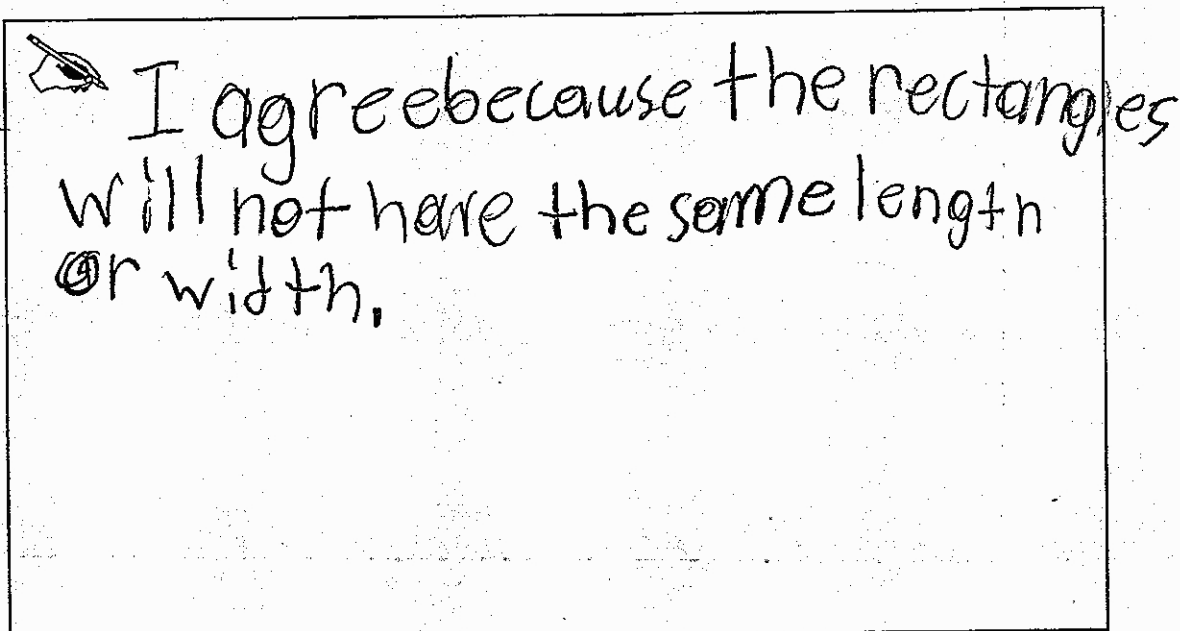 I agree because the rectangles
will not have the same length
or width.